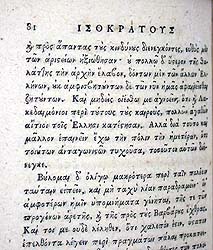 81 ΙΣΟΚΡΑΤΟΥΣ
πρὸς ἅπαντας τοὺς κινδύνους διενεγκόντες, εὐθὺς μὲν
τῶν ἀριστείων ἠξιώθησαν· οὐ πολλῷ δ' ὕστερον τῆς θα-
λάττης τὴν ἀρχὴν ἔλαβον, δόντων μὲν τῶν ἄλλων Ἑλ-
λήνων, οὐκ ἀμφισβητούντων δὲ τῶν νῦν ἡμᾶς ἀφαιρεῖσθαι
ζητούντων. Καὶ μηδεὶς οἰέσθω με ἀγνοεῖν, ὅτι Λα-
κεδαιμόνιοι περὶ τούτους τοὺς καιροὺς, πολλῶν ἀγαθῶν
αἴτιοι τοῖς Ἕλλησι κατέστησαν. Ἀλλὰ διὰ τοῦτο καὶ
μᾶλλον ἐπαινεῖν ἔχω τὴν πόλιν τὴν ἡμετέραν, ὅτι
τοιούτων ἀνταγωνιστῶν τυχοῦσα, τοσοῦτον αὐτῶν διή-
νεγκε.
Βούλομαι δ' ὀλίγῳ μακρότερα περὶ τοῖν πολέοιν
ταύταιν εἰπεῖν, καὶ μὴ ταχὺ λίαν παραδραμεῖν· ἵν'
ἀμφοτέρων ἡμῖν ὑπομνήματα γένηται, τῆς τε τῶν
προγόνων ἀρετῆς, καὶ τῆς πρὸς τοὺς Βαρβάρους ἔχθρας.
Καί τοι με οὐ λέληθεν, ὅτι χαλεπόν ἐστιν, ὕστατον
ἐπελθόντα λέγειν περὶ πραγμάτων πάλαι προκατει-